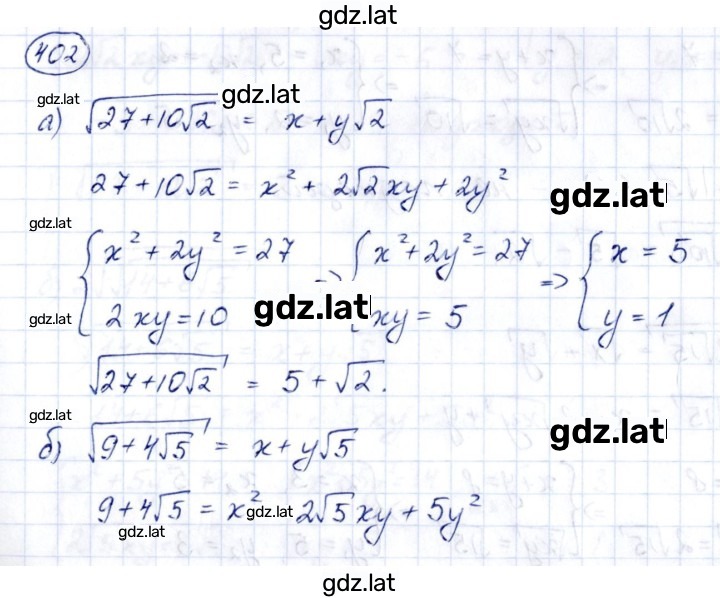 gdz.lat
402
gdz.lat
gdz.lat
а) √(27+10√2) = x+y√2
27+10√2 = x² + 2√2xy + 2y²
gdz.lat
gdz.lat
{ x² + 2y² = 27 => { x² + 2y² = 27 => { x = 5
gdz.lat
{ 2xy = 10 gdz.lat xy = 5 { y = 1
√(27+10√2) = 5 + √2.
gdz.lat
б) √(9+4√5) = x+y√5
gdz.lat
9+4√5 = x² gdz.lat 2√5xy + 5y²
gdz.lat
gdz.lat